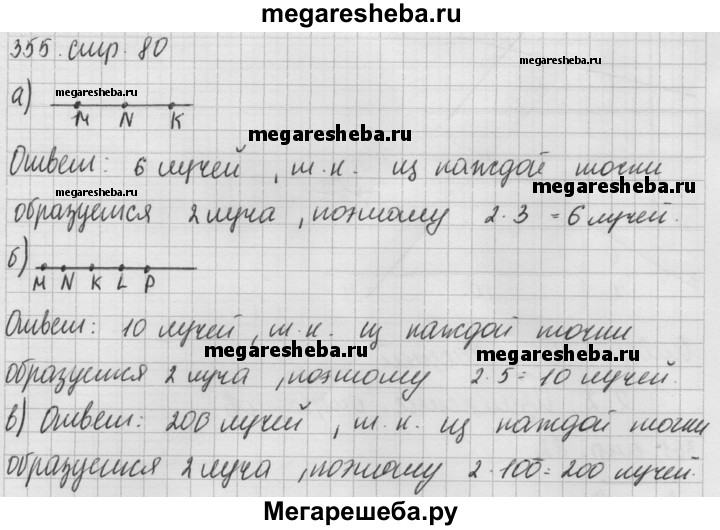 megaresheba.ru
355. стр. 80
megaresheba.ru
а) megaresheba.ru
M N K
megaresheba.ru
Ответ: 6 лучей, т.к. из каждой точки
megaresheba.ru megaresheba.ru
образуется 2 луча, поэтому 2·3 = 6 лучей.
б)
M N K L P
Ответ: 10 лучей, т.к. из каждой точки
megaresheba.ru megaresheba.ru
образуется 2 луча, поэтому 2·5 = 10 лучей.
в) Ответ: 200 лучей, т.к. из каждой точки
образуется 2 луча, поэтому 2·100 = 200 лучей.
Мегарешеба.ру